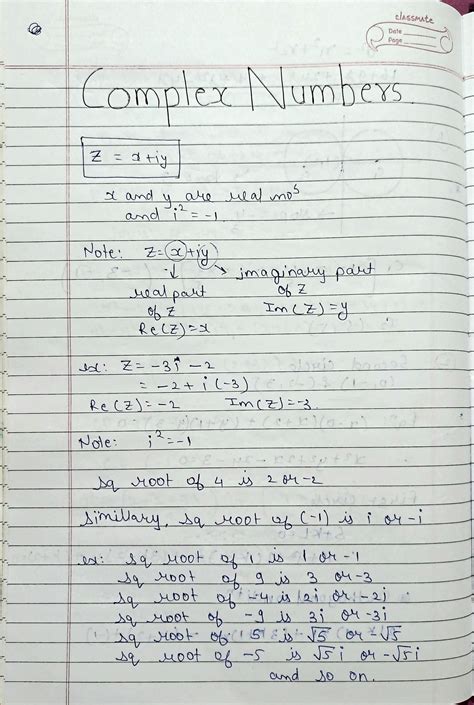 classmate
Date
Page
Complex Numbers.
Z = x+iy
x and y are real nos
and i² = -1.
Note: Z = x+iy
real part
of Z
Re(Z)=x
imaginary part
of Z
Im(Z)=y
ex: Z = -3i - 2
= -2 + i(-3)
Re(Z) = -2 Im(Z) = -3.
Note: i² = -1
sq root of 4 is 2 or -2
Simillary, sq root of (-1) is i or -i
ex: sq root of 1 is 1 or -1
sq root of 9 is 3 or -3
sq root of -4 is 2i or -2i
sq root of -9 is 3i or -3i
sq root of 5 is √5 or -√5
sq root of -5 is √5i or -√5i
and so on.